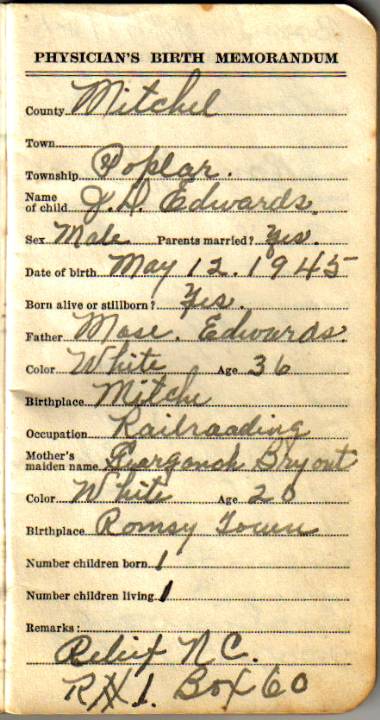 PHYSICIAN'S BIRTH MEMORANDUM
County Mitchel
Town
Township Poplar.
Name of child J.D. Edwards.
Sex Male Parents married? Yes.
Date of birth May 12. 1945
Born alive or stillborn? Yes.
Father Mase. Edwards.
Color White Age 36
Birthplace Mitche
Occupation Railraading
Mother's maiden name Bryant
Color White Age 20
Birthplace Romsy Town
Number children born 1
Number children living 1
Remarks:
Relief N C.
R#1. Box 60